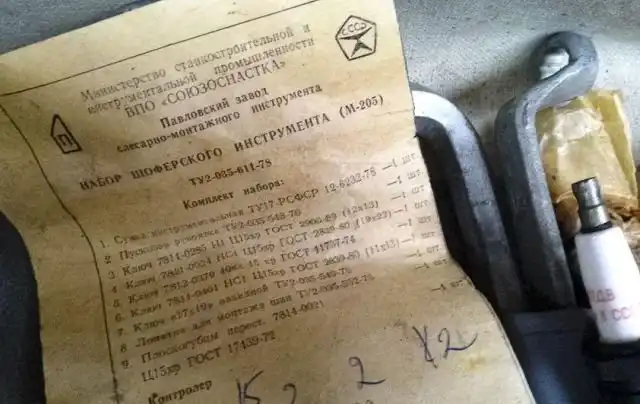 Министерство станкостроительной и
инструментальной промышленности
ВПО «СОЮЗОСНАСТКА»
СССР
Павловский завод
слесарно-монтажного инструмента
НАБОР ШОФЕРСКОГО ИНСТРУМЕНТА (М-205)
ТУ2-035-611-78
Комплект набора:
1. Сумка инструментальная ТУ17 РСФСР 12-6232-76 —1 шт.
2 Пусковая рукоятка ТУ2-035-548-76 —1 шт.
3. Ключ Н1 Ц15хр ГОСТ (12х13) —1 шт.
4 Ключ НС1 Ц15хр ГОСТ 2839-80 (19х22) —1 шт
5. Ключ 7812-0379 40ХБ 15 хр ГОСТ 11737-74
6. Ключ НС1 Ц15хр ГОСТ 2839-80 —1 шт.
7. Ключ «17х19» накидной ТУ2-035-
8 Лопатка для монтажа шин —1 шт.
9 Плоскогубцы перест. 7814-0021 —1 шт
Ц15хр ГОСТ 17439-72
Контролер
2